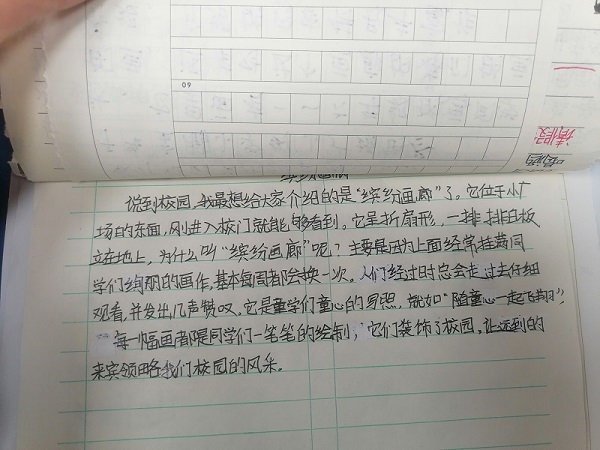 09
请假
缤纷画廊
说到校园,我最想给大家介绍的是“缤纷画廊”了。它位于小广
场的东面,刚进入校门就能够看到。它呈折扇形,一排排白板
立在地上,为什么叫“缤纷画廊”呢?主要是因为上面经常挂着同
学们绚丽的画作,基本每周都会换一次。人们经过时总会走过去仔细
观看,并发出几声赞叹。它是童学们童心的写照,就如“随童心一起飞翔”!
每一幅画都是同学们一笔笔的绘制,它们装饰了校园,让远到的
来宾领略我们校园的风采。